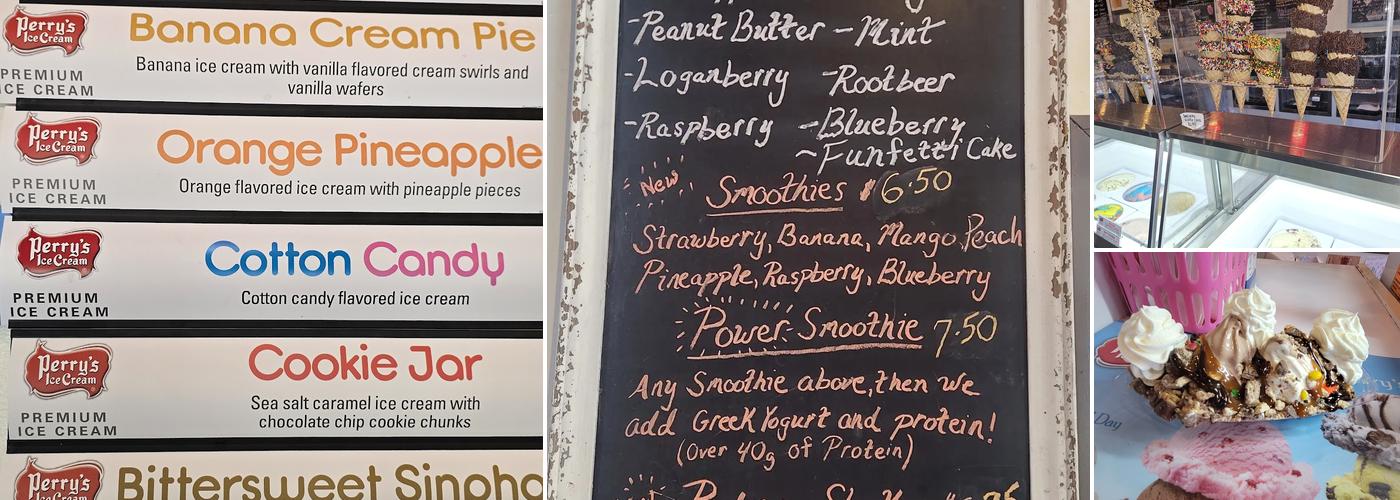 Perry's
Ice Cream
PREMIUM
ICE CREAM
Banana Cream Pie
Banana ice cream with vanilla flavored cream swirls and
vanilla wafers
Perry's
Ice Cream
PREMIUM
ICE CREAM
Orange Pineapple
Orange flavored ice cream with pineapple pieces
Perry's
Ice Cream
PREMIUM
ICE CREAM
Cotton Candy
Cotton candy flavored ice cream
Perry's
Ice Cream
PREMIUM
ICE CREAM
Cookie Jar
Sea salt caramel ice cream with
chocolate chip cookie chunks
Perry's
Ice Cream
Bittersweet
-Peanut Butter -Mint
-Loganberry -Rootbeer
-Raspberry -Blueberry
~Funfetti Cake
New
Smoothies $6.50
Strawberry, Banana, Mango, Peach
Pineapple, Raspberry, Blueberry
Power Smoothie 7.50
Any Smoothie above, then we
add Greek Yogurt and protein!
(Over 40g of Protein)
Day